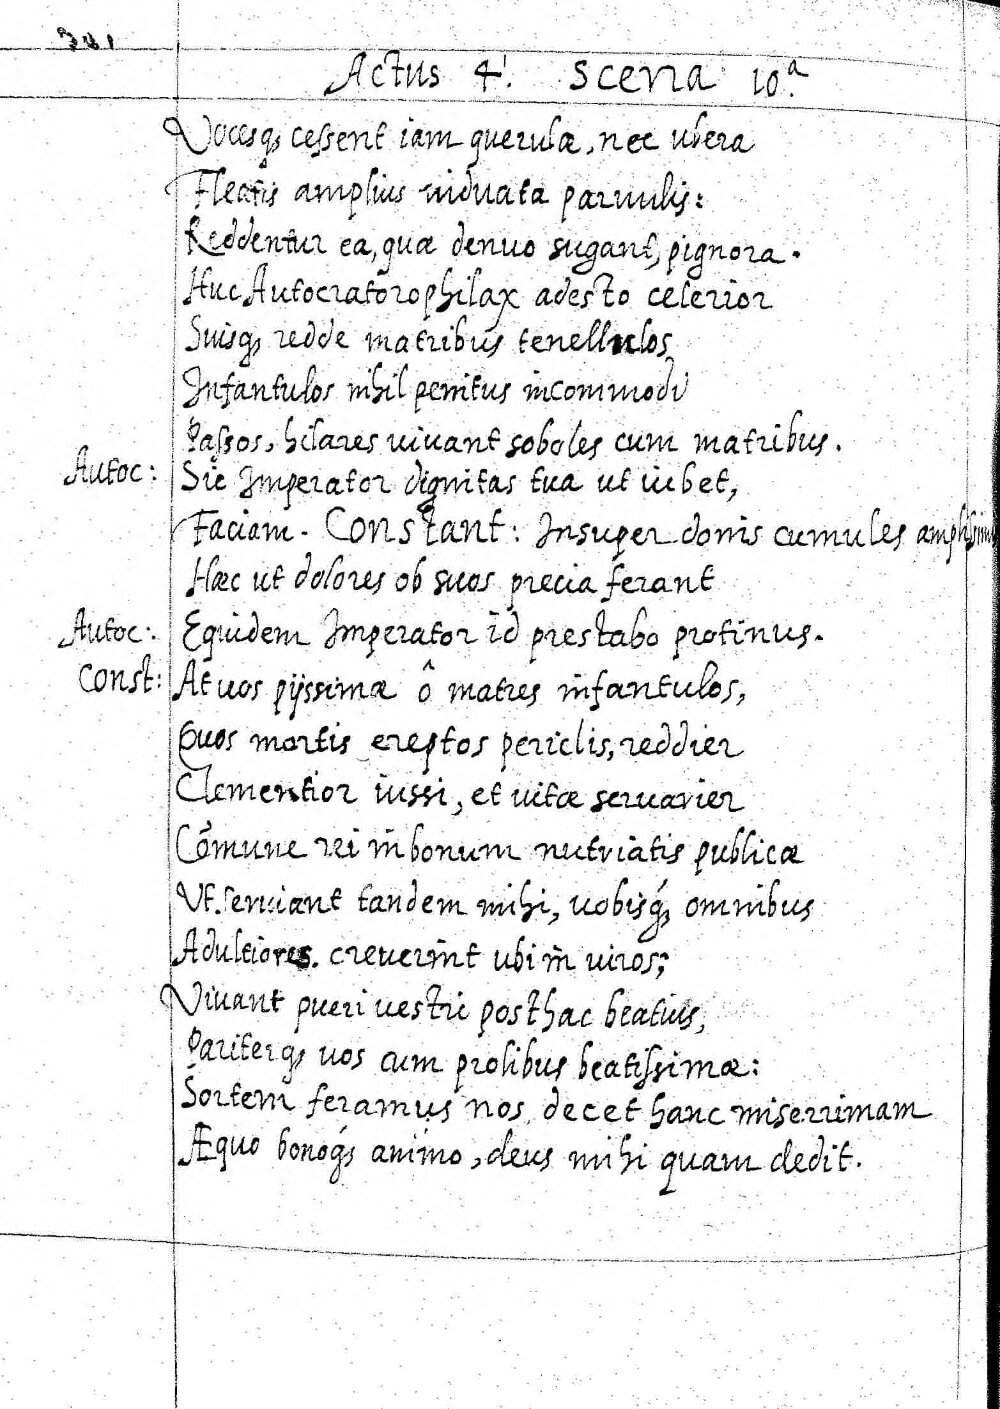 Actus 4ꞌ. Scena 10ª
Vocesq₃ cessent iam querulæ, nec ubera
Fleatis amplius uiduata paruulis:
Reddentur ea, quæ denuo sugant, pignora.
Huc Autocratorophilax adesto celerior
Suisq₃ redde matribus tenellulos
Infantulos nihil penitus incommodi
Passos, hilares uiuant soboles cum matribus.
Autoc: Sic Imperator dignitas tua ut iubet,
Faciam. Constant: Insuper donis cumules
Hæc ut dolores ob suos precia ferant
Autoc: Equidem Imperator id prestabo protinus.
Const: At uos pijssimæ ô matres infantulos,
Quos mortis ereptos periclis, reddier
Clementior iussi, et uitæ seruarier
Cōmune rei in bonum nutriatis publicæ
Ut seruiant tandem mihi, uobisq́₃ omnibus
Adultiores. creuerint ubi in uiros;
Viuant pueri uestri posthac beatius,
Pariterq₃ uos cum prolibus beatissimæ:
Sortem feramus nos decet hanc miserrimam
Æquo bonoq́₃ animo, deus mihi quam dedit.